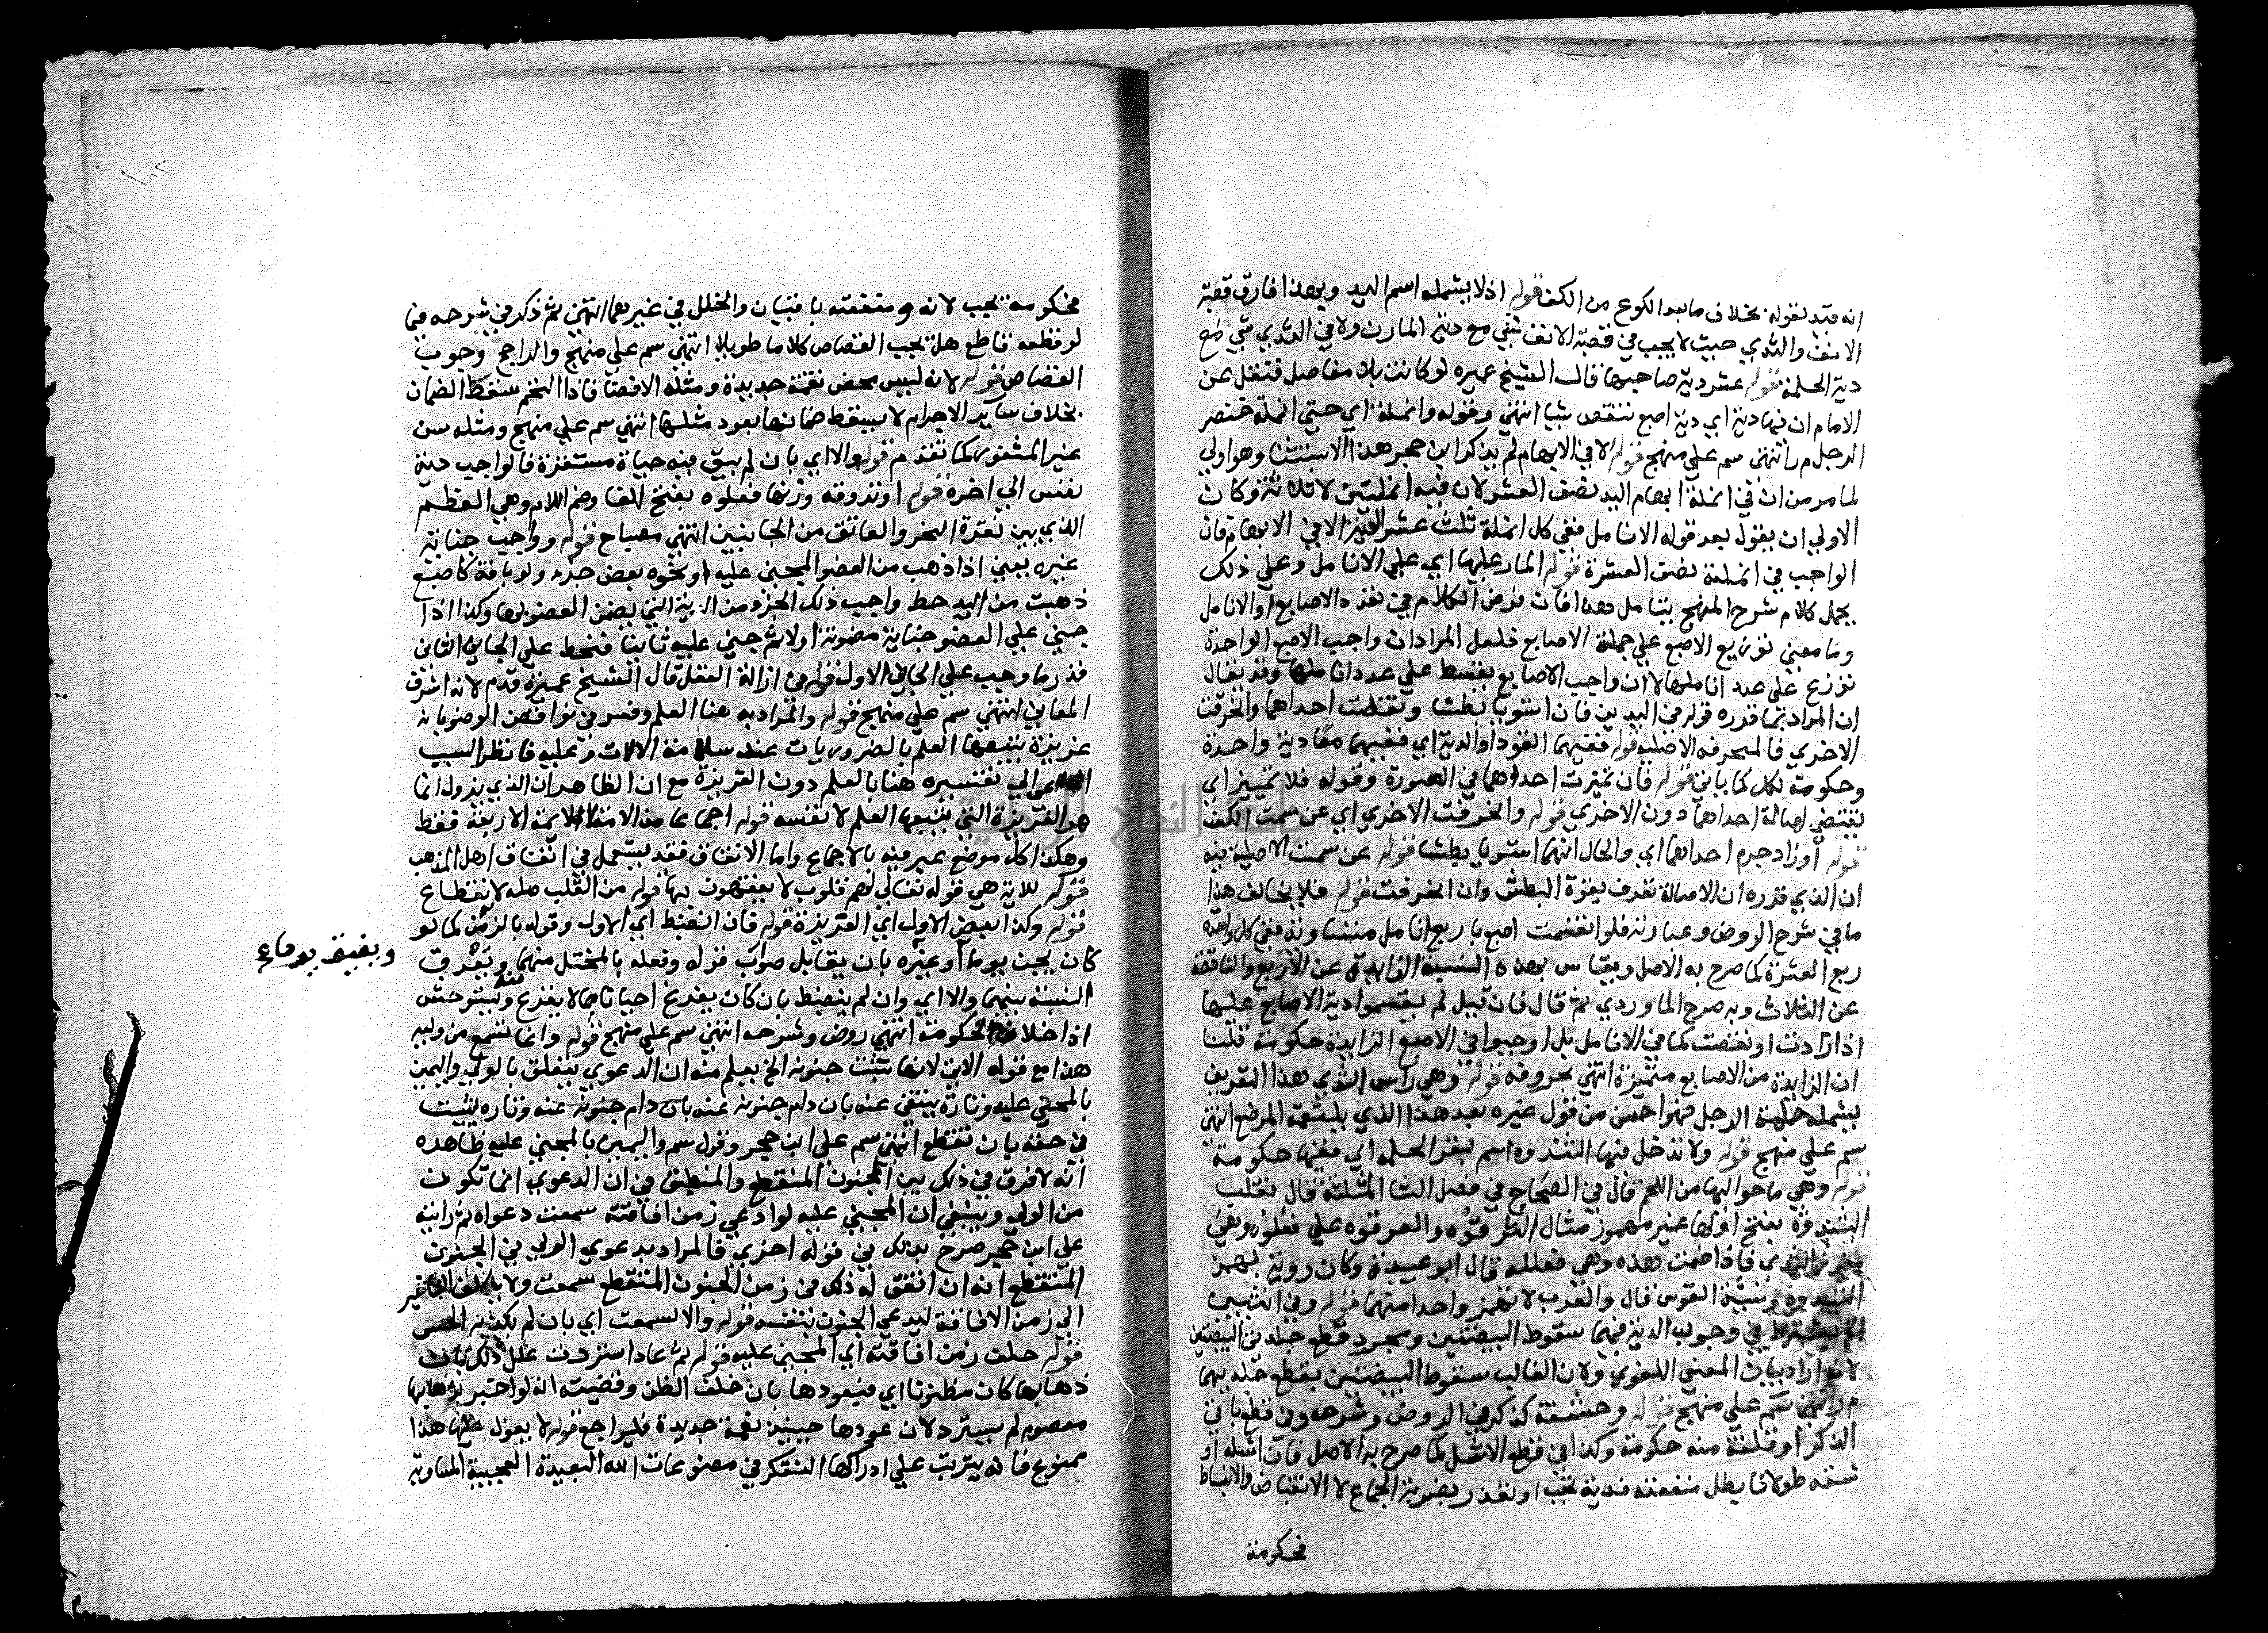 انه قيد بقوله بخلاف ما بعد الكوع من الكف قوله اذ لا يشمله اسم اليد وبهذا فارق قصبة
الانف والثدي حيث لا يجب في قصبة الانف شي مع دية المارن ولا في الثدي شي مع
دية الحلمة قوله عشر دية صاحبها قال الشيخ عميره لو كانت بلا مفاصل فنقل عن
الامام ان فيها دية اي دية اصبع تنقص شيا انتهي وقوله وانملة اي حتي انملة خنصر
الرجل م ر انتهي سم علي منهج قوله الا في الابهام لم يذكر ابن حجر هذا الاستثنا وهو اولي
لما مر من ان في انملة ابهام اليد نصف العشر لان فيه انملتين لا ثلاثة وكان
الاولي ان يقول بعد قوله الانامل ففي كل انملة ثلث عشر الدية الا في الابهام فان
الواجب في انملته نصف العشرة قوله المار عليها اي علي الانامل وعلي ذلك
يحمل كلام شرح المنهج بتامل فهذا فان فرض الكلام في تعدد الاصابع او الانامل
وما معني توزيع الاصبع علي جملة الاصابع فلعل المراد ان واجب الاصبع الواحدة
توزع علي عدد اناملها لا ان واجب الاصابع يقسط علي عدد اناملها وقد يقال
ان المراد بما قدره قوله من اليدين فان استويا بطشا ونقصت احداهما وانحرفت
الاخري فالمنحرفة الاصلية قوله ففيهما القود او الدية اي ففيهما معا دية واحدة
وحكومة لكل كما ياتي قوله فان تميزت احداهما في الصورة وقوله فلا تمييز اي
يقتضي اصالة احداهما دون الاخري قوله وانحرفت الاخري اي عن سمت الكف
قوله او زاد جرم احداهما اي والحال انهما استويا بطشا قوله عن سمت الاصلية فيه
ان الذي قدره ان الاصالة تعرف بقوة البطش وان انحرفت قوله فلا يخالف هذا
ما في شرح الروض وعبارته فلو انقسمت اصبع باربع انامل متساوية ففي كل واحدة
ربع العشرة كما صرح به الاصل ويقاس بهذه النسبة الزايدة عن الاربع والناقصة
عن الثلاث وبه صرح الماوردي ثم قال فان قيل لم يقسموا دية الاصابع عليها
اذا زادت او نقصت كما في الانامل بل اوجبوا في الاصبع الزايدة حكومة قلنا
ان الزايدة من الاصابع متميزة انتهي بحروفه قوله وهي راس الثدي هذا التعريف
يشمله حلمة الرجل فهو احسن من قول غيره بعد هذا الذي يلتقمه المرضع انتهي
سم علي منهج قوله ولا تدخل فيها الثندوه اسم لمغرز الحلمه اي ففيها حكومة
قوله وهي ما حواليها من اللحم قال في الصحاح في فصل الثا المثلثة قال ثعلب
الثندوة بفتح اولها غير مهموز مثال الترقوه والعرقوه علي فعلوه وهي
مغرز الثدي فاذا ضمت همزه وهي فعللة قال ابو عبيدة وكان روبة يهمز
الثندوه وسئية القوس قال والعرب لا تهمز واحدا منهما قوله وفي انثيين
الخ يشترط في وجوب الدية فيهما سقوط البيضتين ومجرد قطع جلد في البيضتين
لانه اراد بيان المعني اللغوي ولان الغالب سقوط البيضتين بقطع جلديهما
م ر انتهي سم علي منهج قوله وحشفة كذكر في الروض وشرحه وفي قطع باقي
الذكر او فلقة منه حكومة وكذا في قطع الاشل كما صرح به الاصل فان اشله او
شقه طولا فابطل منفعته فدية تجب او تعذر بضربة الجماع لا الانقباض والانبساط
فحكومة
فحكومة تجب لانه ومنفعته باقيان والخلل في غيرهما انتهي ثم ذكر في شرحه فيما
لو قطعه قاطع هل يجب القصاص كلاما طويلا انتهي سم علي منهج والراجح وجوب
القصاص قوله لانه ليس محض نعمة جديدة ومثله الافضا فاذا التحم سقط الضمان
بخلاف ساير الاجرام لا يسقط ضمانها بعود مثلها انتهي سم علي منهج ومثله سن
غير المثغور كما تقدم قوله والا اي بان لم يبق فيه حياة مستقرة فالواجب دية
نفس الي اخره قوله او ترقوه وزنها فعلوه بفتح الفا وضم اللام وهي العظم
الذي بين ثغرة النحر والعاتق من الجانبين انتهي مصباح قوله وواجب جناية
غيره يعني اذا ذهب من العضو المجني عليه او نحوه بعض جرم ولو بافة كاصبع
ذهبت من اليد حط واجب ذلك الجزء من الدية التي يضمن العضو بها وكذا اذا
جني علي العضو جناية مضمونة اولا ثم جني عليه ثانيا فيحط علي الجاني الثاني
قدر ما وجب علي الجاني الاول قوله في ازالة العقل قال الشيخ عميرة قدم لانه اشرف
المعاني انتهي سم علي منهج قوله والمراد به هنا العلم وفسر في نواقض الوضو بانه
غريزة يتبعها العلم بالضروريات عند سلامة الالات وعليه فانظر السبب
الداعي الي تفسيره هنا بالعلم دون الغريزة مع ان الظاهر ان الذي يزول انما
هو الغريزة التي يتبعها العلم لا نفسه قوله اجماعا من الامة لا الايمة الاربعة فقط
وهكذا كل موضع عبر فيه بالاجماع واما الاتفاق فقد يستعمل في اتفاق اهل المذهب
قوله للاية هي قوله تعالي لهم قلوب لا يفقهون بها قوله من القلب صله لانقطاع
قوله وكذا بعض الاول اي الغريزة قوله فان انضبط اي الاول وقوله بالزمن كما لو
كان يجن يوما او غيره بان يقابل صواب قوله وفعله بالمختل منهما ويعرف
ويفيق يوما ع
النسبة بينهما والا اي وان لم ينضبط بان كان يفزع احيانا مما لا يفزع ويستوحش
منه
اذا خلا فالحكومة انتهي روض وشرحه انتهي سم علي منهج قوله وانما تسمع من وليه
هذا مع قوله الاتي لانها تثبت جنونه الخ يعلم منه ان الدعوي يتعلق بالولي واليمين
بالمجني عليه وتارة ينتفي عنه بان دام جنونه عنه بان دام جنونه عنه وتاره يثبت
في حقه بان تقطع انتهي سم علي ابن حجر وقول سم واليمين بالمجني عليه ظاهره
انه لا فرق في ذلك بين الجنون المتقطع والمنطبق في ان الدعوي انما تكون
من الولي وينبغي ان المجني عليه لو ادعي زمن افاقته سمعت دعواه ثم رايته
علي ابن حجر صرح بذلك في قوله اخري فالمراد بدعوي الولي في الجنون
المتقطع انه ان اتفق له ذلك في زمن الجنون المتقطع سمعت ولا يكلف التاخير
الي زمن الافاقة ليدعي الجنون بنفسه قوله والا سمعت اي بان لم يكذبه الحس
قوله حلت زمن افاقته اي المجني عليه قوله ثم عاد استردت علل ذلك بان
ذهابها كان مظنونا اي فبعودها بان خلف الظن وقضيته انه لو اخبر بذهابها
معصوم لم يسترد لان عودها حينيذ نعمة جديدة فليراجع قوله لا يعول عليها هذا
ممنوع فانه يترتب علي ادراكها التفكر في مصنوعات الله البعيدة العجيبة المتفاوتة